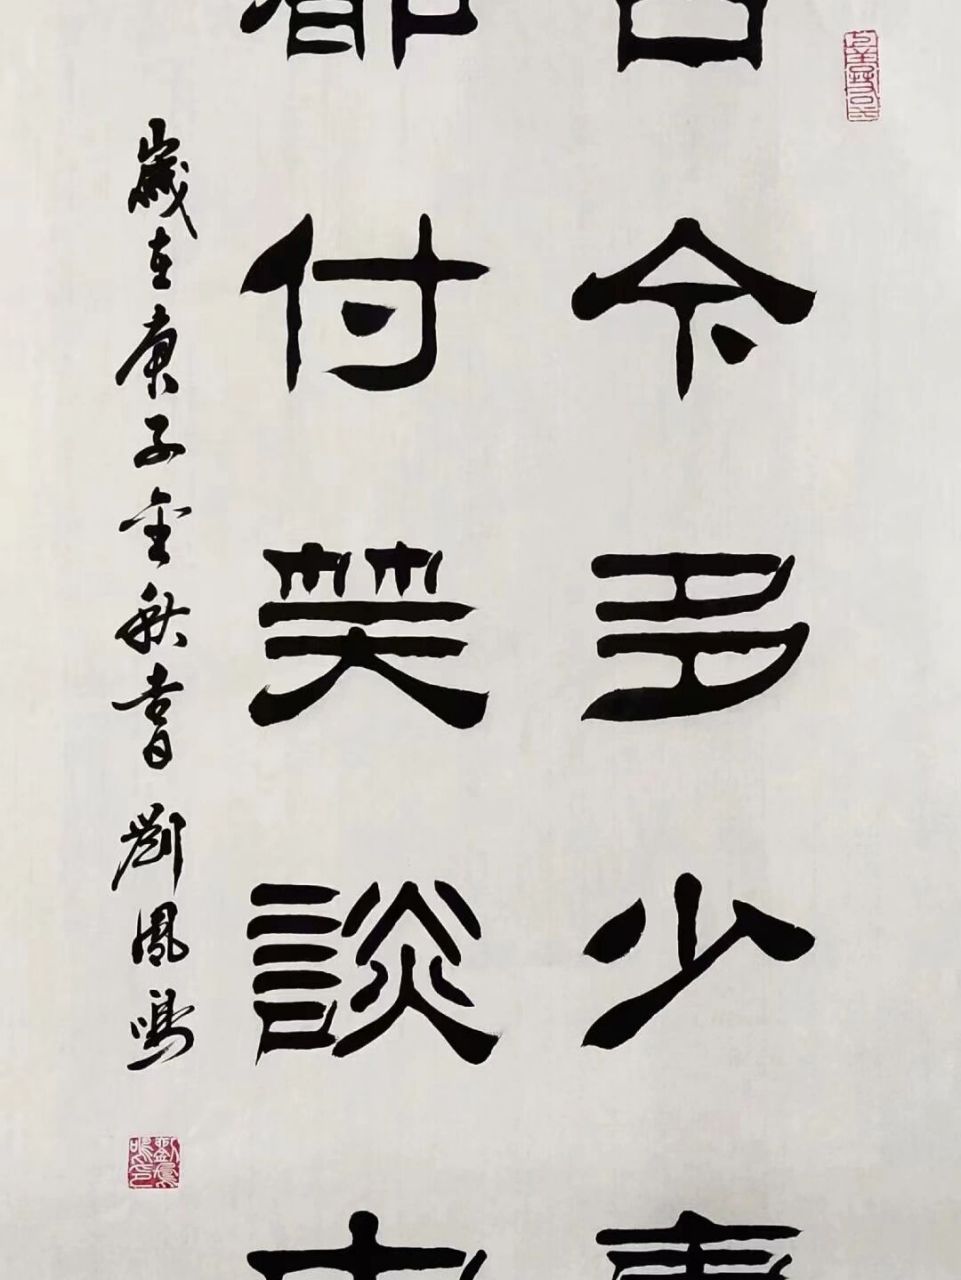 古今多少事
都付笑談中
歲在庚子金秋書 劉鳳鳴
劉鳳鳴印